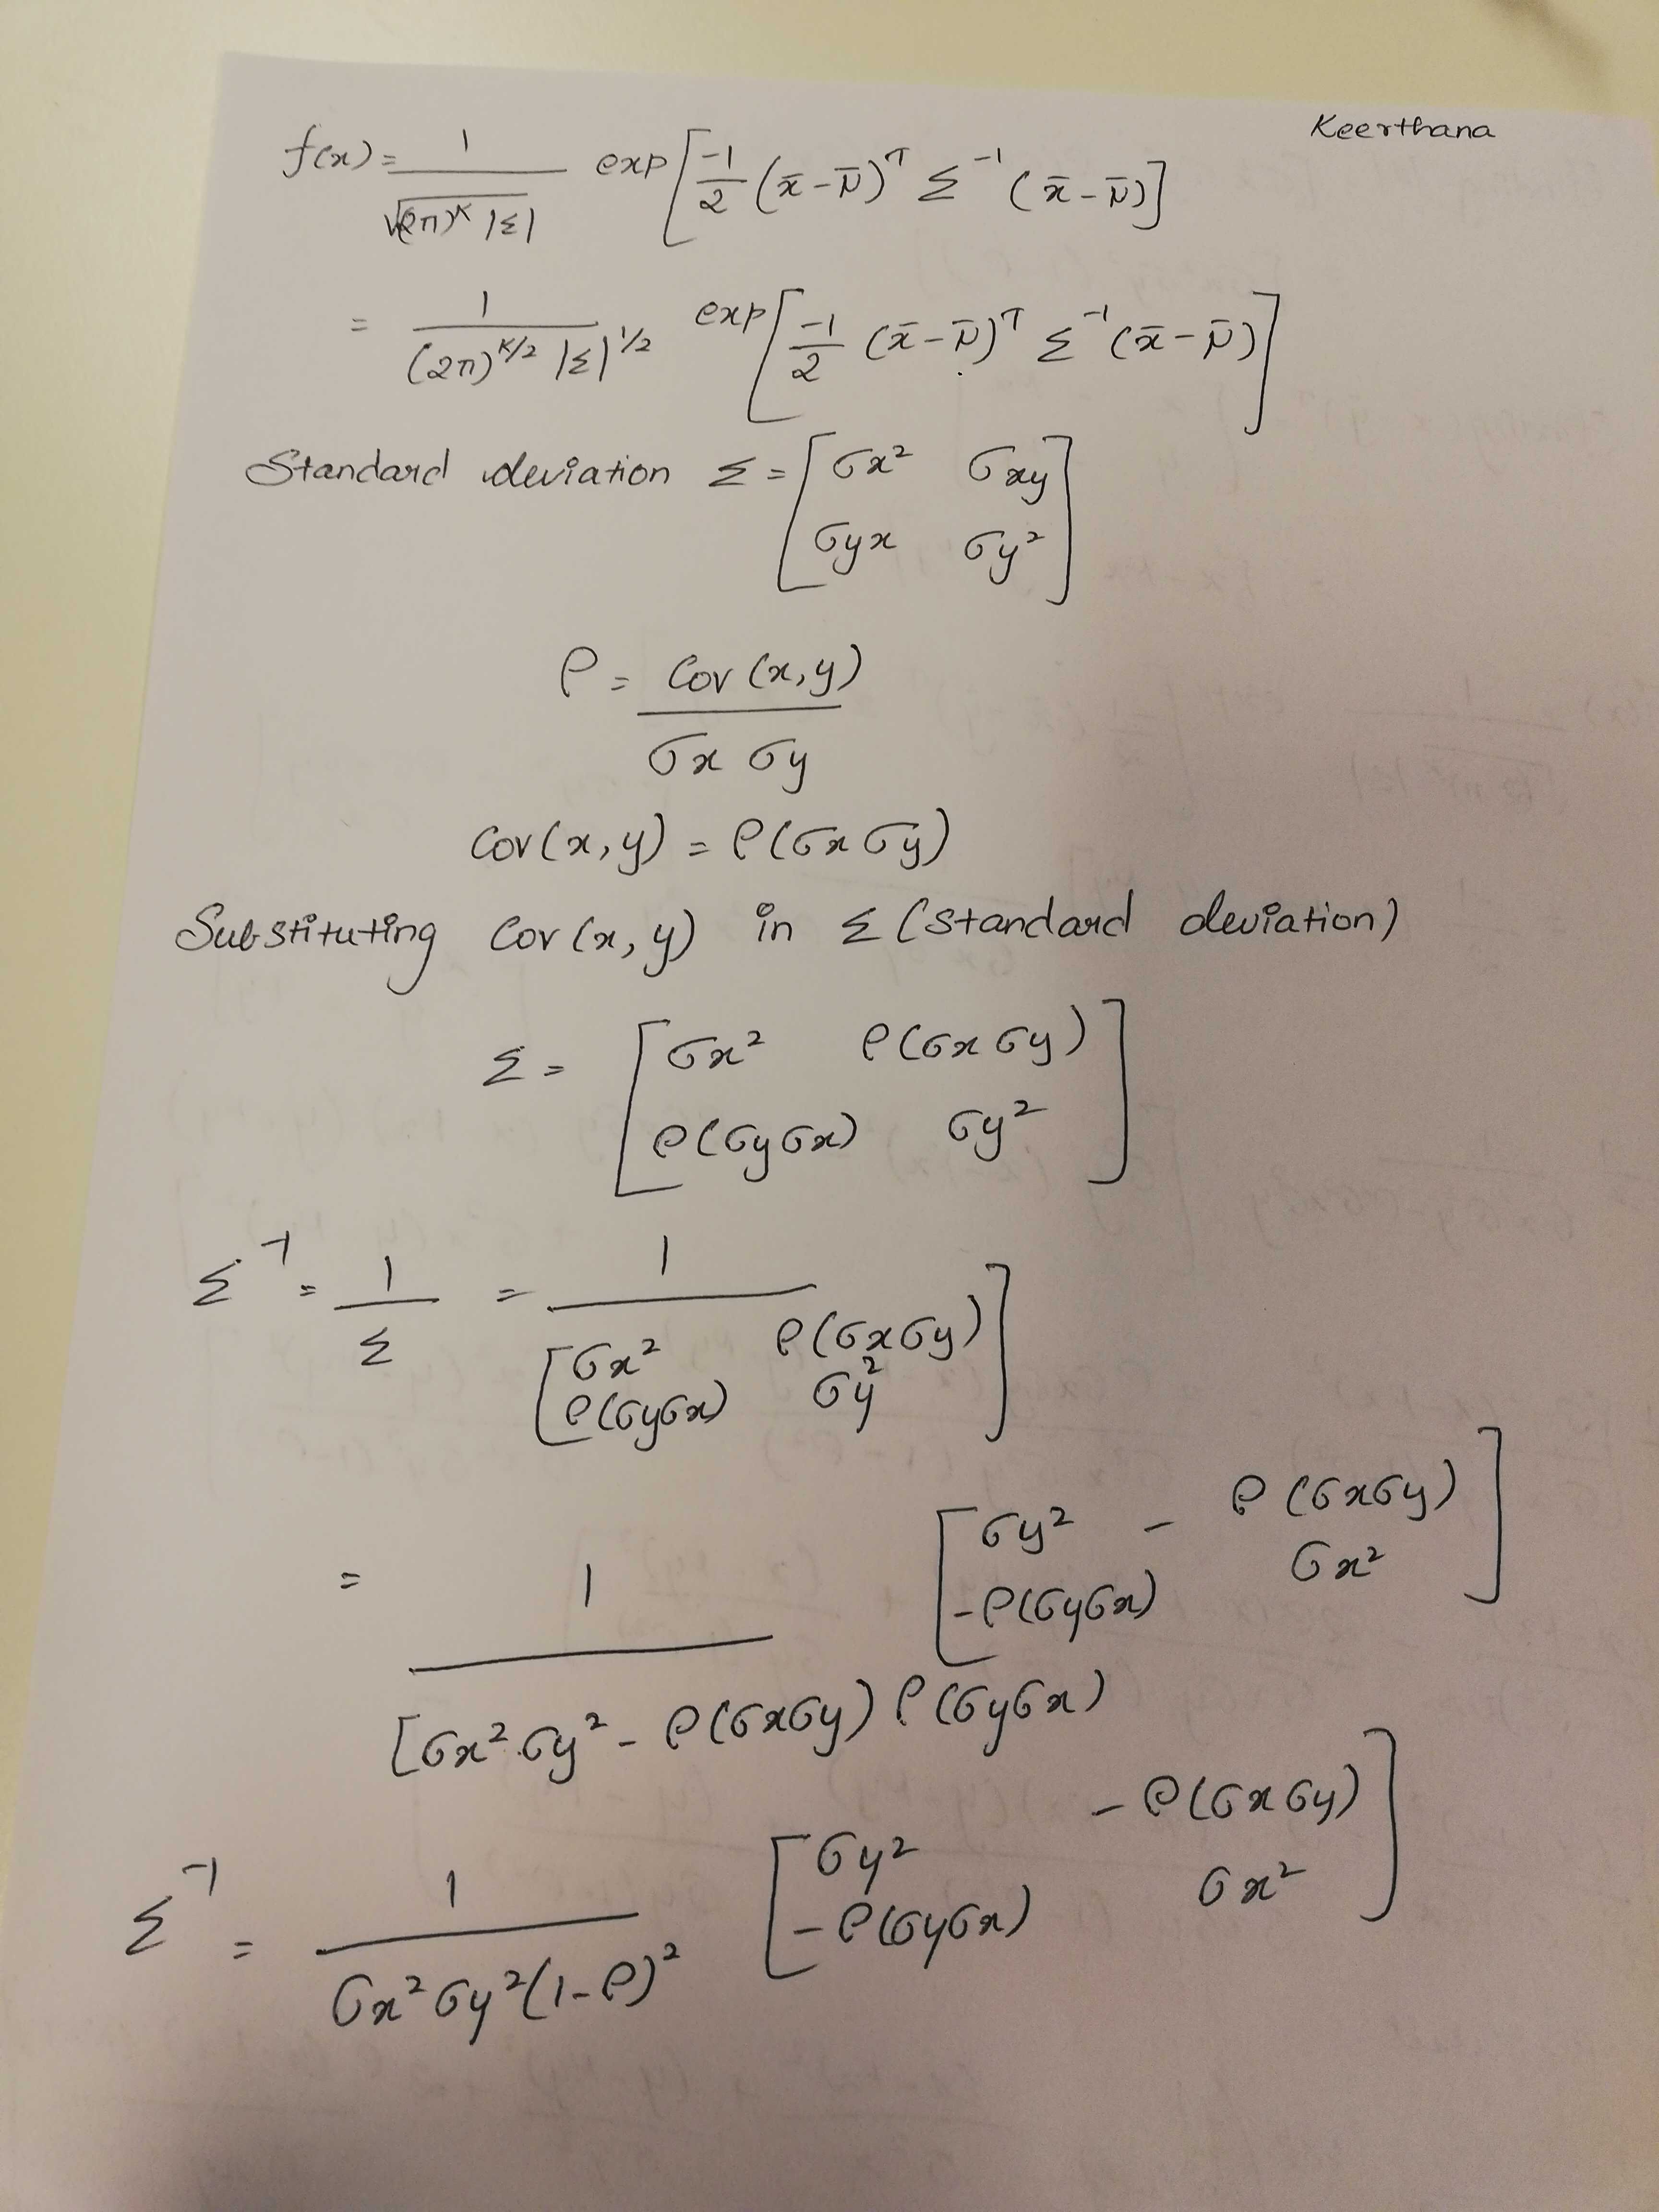 Keerthana
f(x) = 1 / √(2π)^K |Σ| exp[-1/2 (x̄ - μ̄)^T Σ^-1 (x̄ - μ̄)]
= 1 / (2π)^K/2 |Σ|^1/2 exp[-1/2 (x̄ - μ̄)^T Σ^-1 (x̄ - μ̄)]
Standard deviation Σ = [σx² σxy
σyx σy²]
ρ = Cov(x,y)
σx σy
Cov(x,y) = ρ(σx σy)
Substituting Cov(x,y) in Σ (standard deviation)
Σ = [σx² ρ(σx σy)
ρ(σyσx) σy²]
Σ^-1 = 1/Σ = 1
[σx² ρ(σxσy)
ρ(σyσx) σy²]
= 1 [σy² - ρ(σxσy)
-ρ(σyσx) σx²]
[σx².σy² - ρ(σxσy) ρ(σyσx)
Σ^-1 = 1 [σy² -ρ(σxσy)
-ρ(σyσx) σx²]
σx²σy²(1-ρ)²